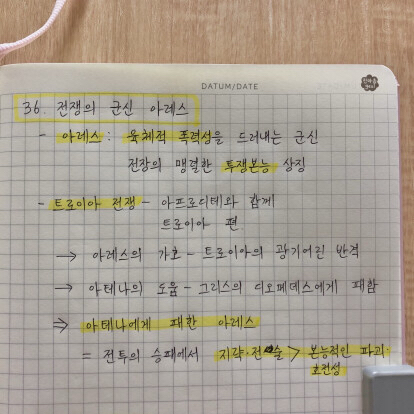 DATUM/DATE
36. 전쟁의 군신 아레스
- 아레스 : 육체적 폭력성을 드러내는 군신
전장의 맹렬한 투쟁본능 상징
- 트로이아 전쟁 - 아프로디테와 함께
트로이아 편
→ 아레스의 가호 - 트로이아의 광기어린 반격
→ 아테나의 도움 - 그리스의 디오메데스에게 패함
⇒ 아테나에게 패한 아레스
= 전투의 승패에서 지략·전술 > 본능적인 파괴·
호전성